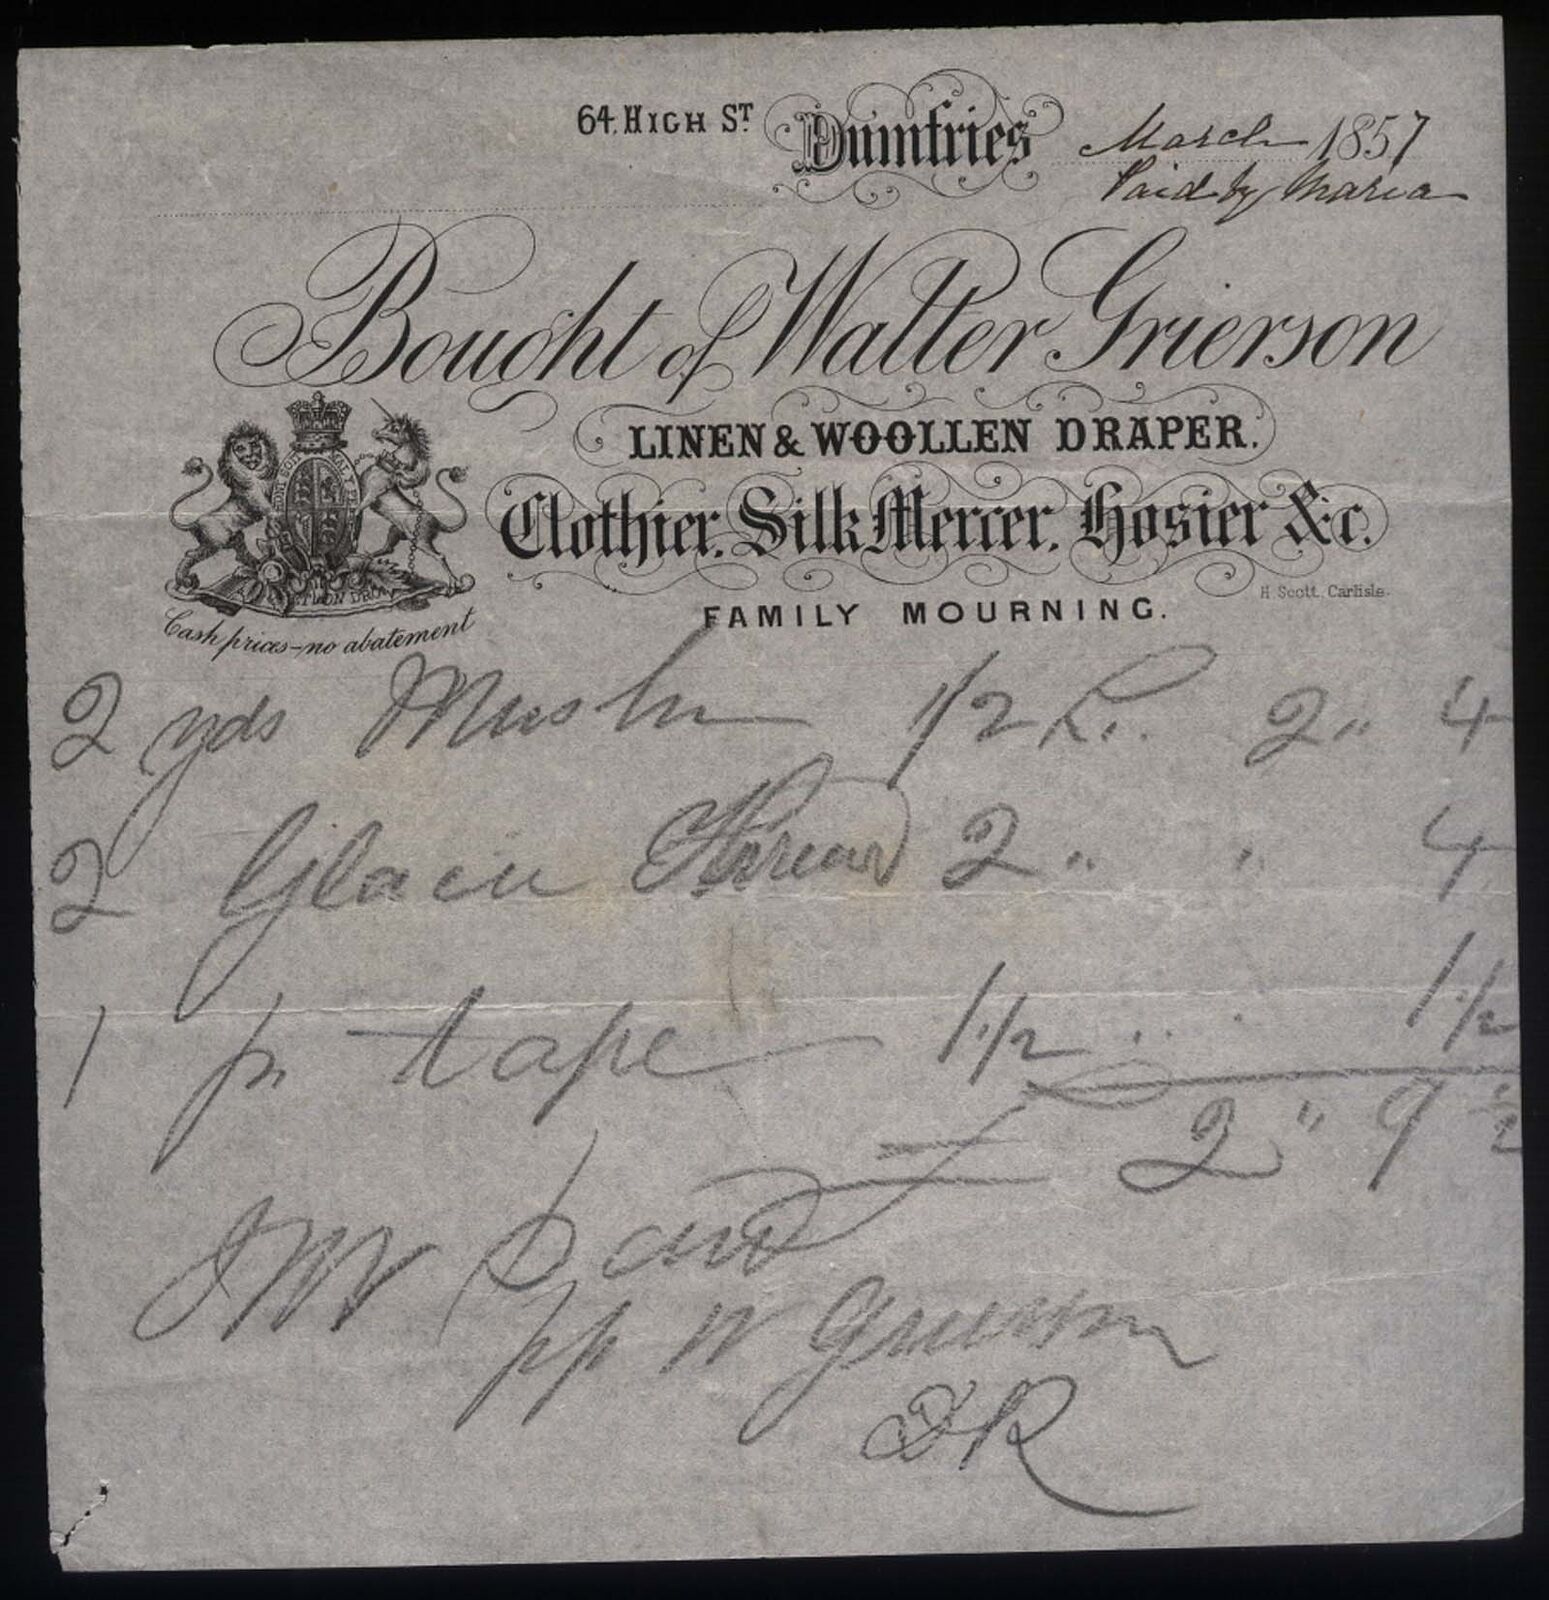 64, HIGH ST. Dumfries March 1857
Paid by Maria
Bought of Walter Grierson
LINEN & WOOLLEN DRAPER.
Clothier, Silk Mercer, Hosier &c.
H. Scott, Carlisle.
FAMILY MOURNING.
Cash prices - no abatement
2 yds Muslin 1/2 2 " 4
2 Thread 2 " " 4
1 ps tape 1 1/2 1 1/2
2 " 9 1/2
Paid
pp W Grierson